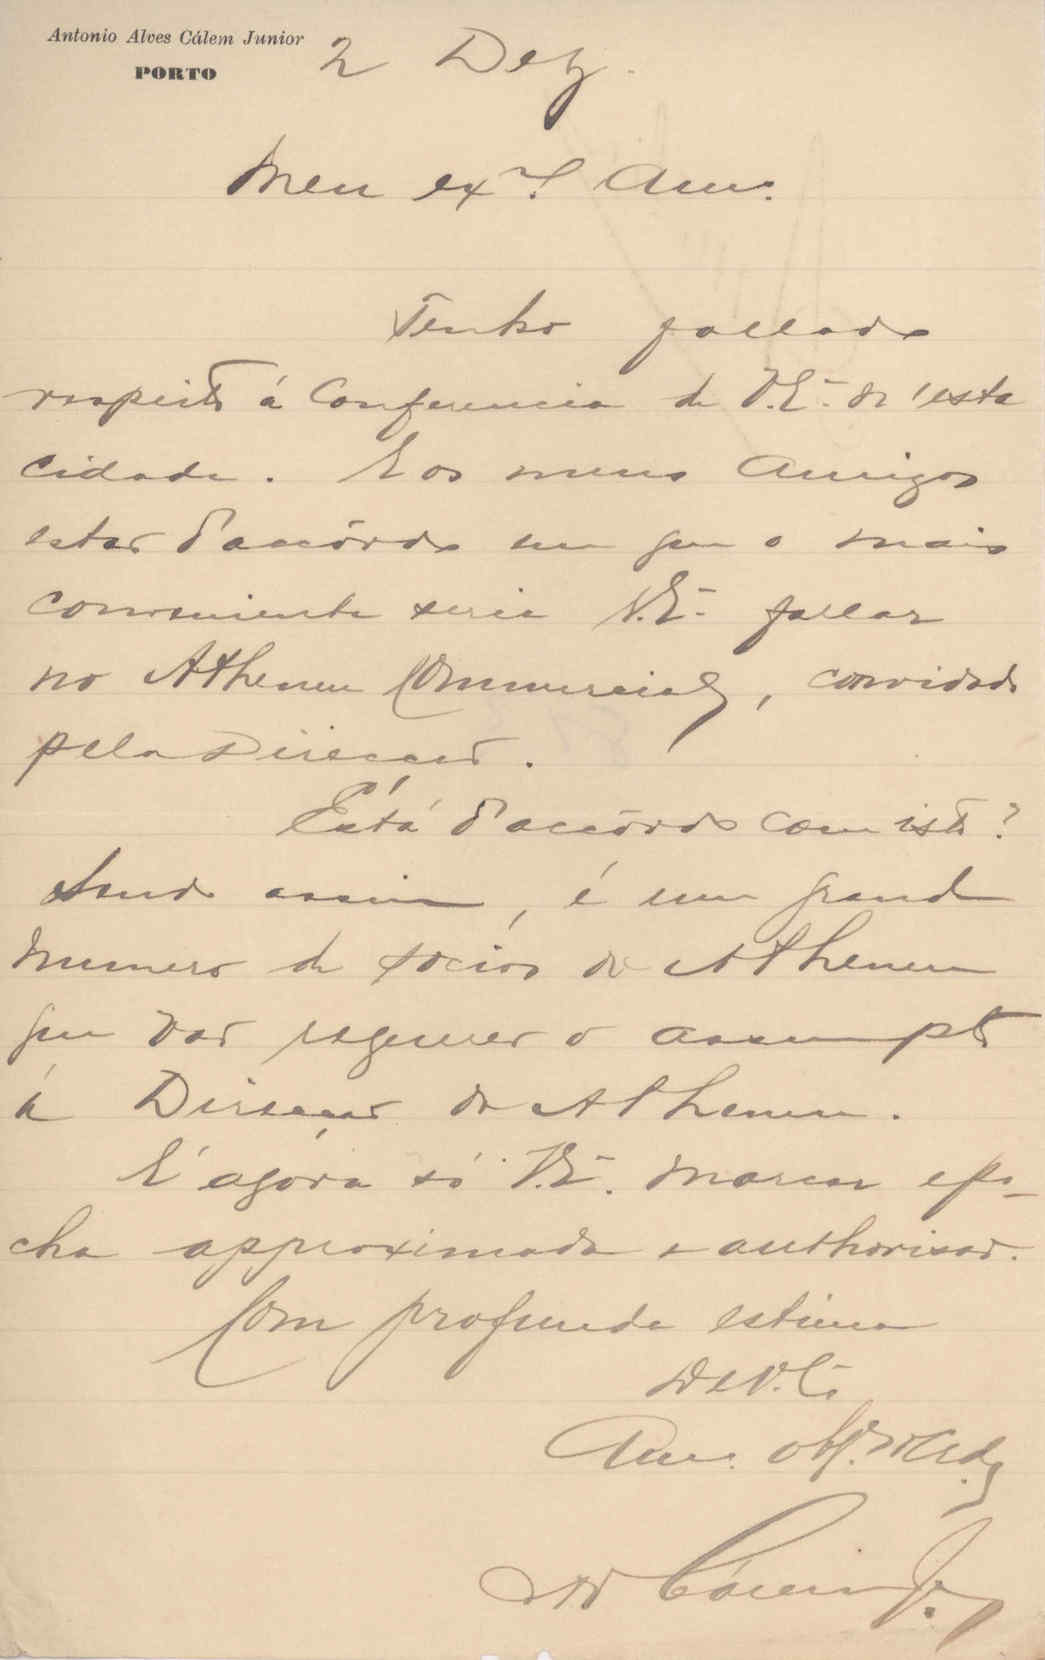 Antonio Alves Cálem Junior
PORTO
2 Dez.
Meu ex.mo Am.o
Tenho fallado
respeito á Conferencia de V. E.ª n'esta
cidade. E os meus Amigos
estão d'accôrdo em que o mais
conveniente seria V. E.ª fallar
no Atheneu Commercial, convidado
pela Direcção.
Está d'accôrdo com isto?
Sendo assim, é um grande
numero de socios do Atheneu
que vão requerer o assumpto
á Direcção do Atheneu.
É agóra só V. E.ª marcar epo-
cha approximada e authorisar.
Com profunda estima
De V. E.ª
Am.o obg.do
A Cálem Jr.